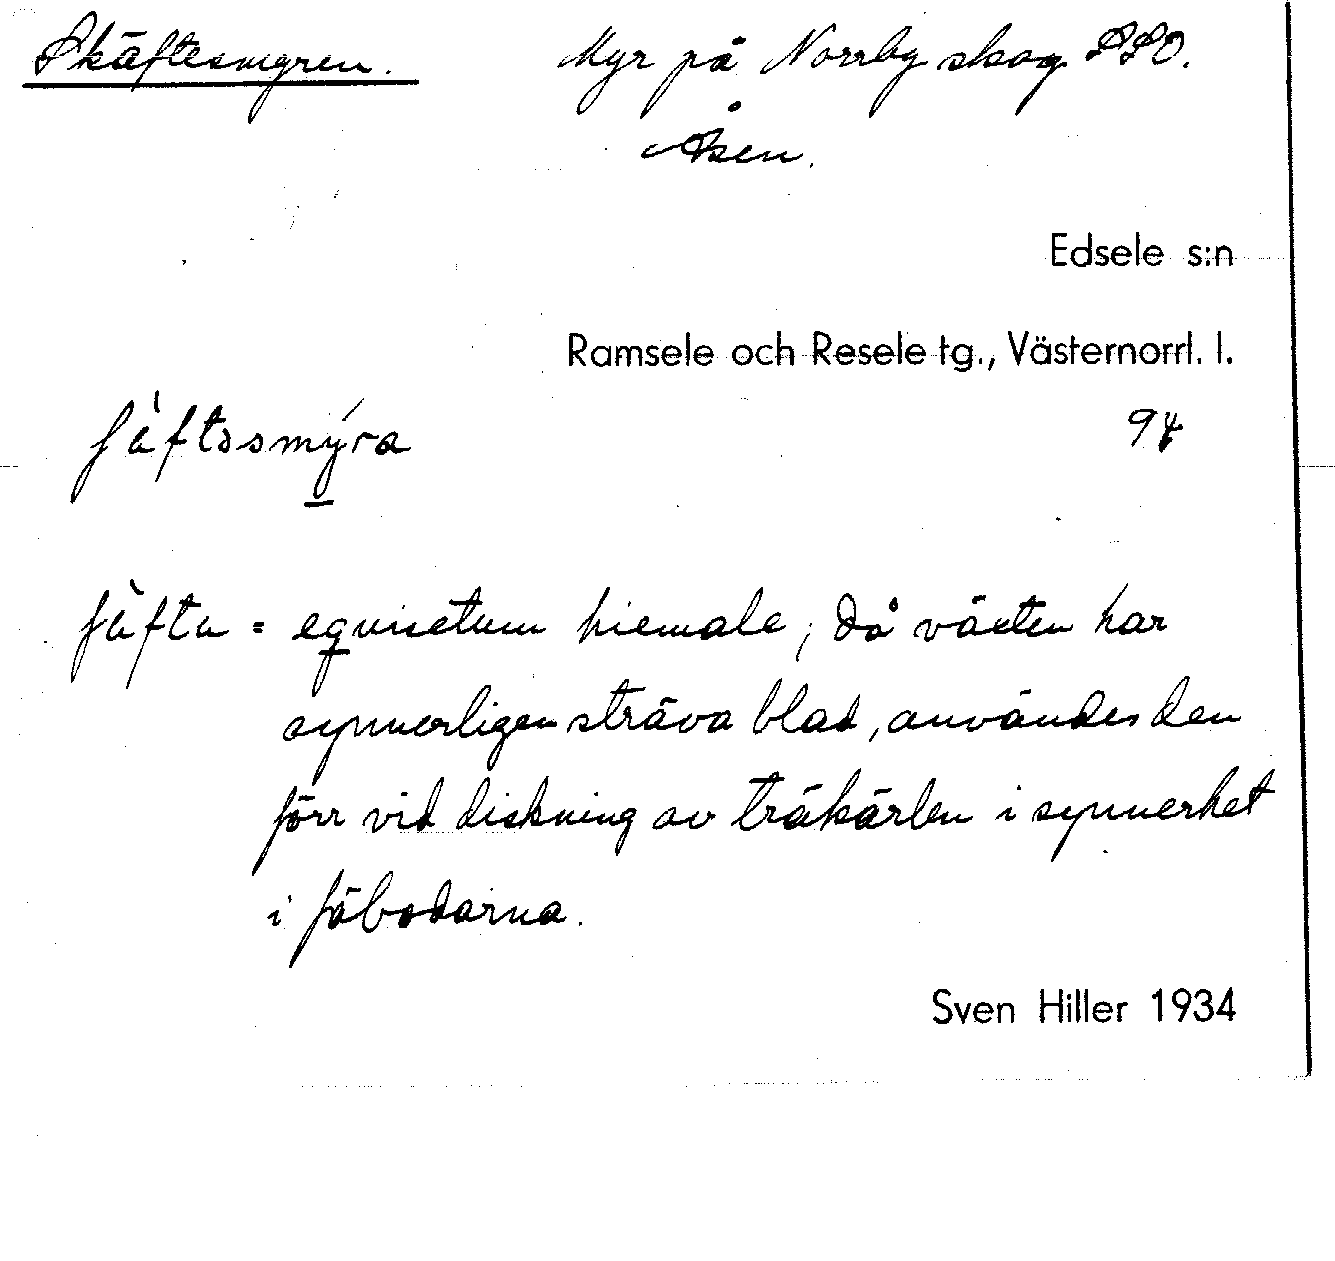 Skäftesmyren. Myr på Norrby skog SSO.
Åsen.
Edsele s:n
Ramsele och Resele tg., Västernorrl. l.
94
ʃäftəsmýra
ʃäfta = equisetum hiemale; då växten har
synnerligen sträva blad, användes den
förr vid diskning av träkärlen i synnerhet
i fäbodarna.
Sven Hiller 1934